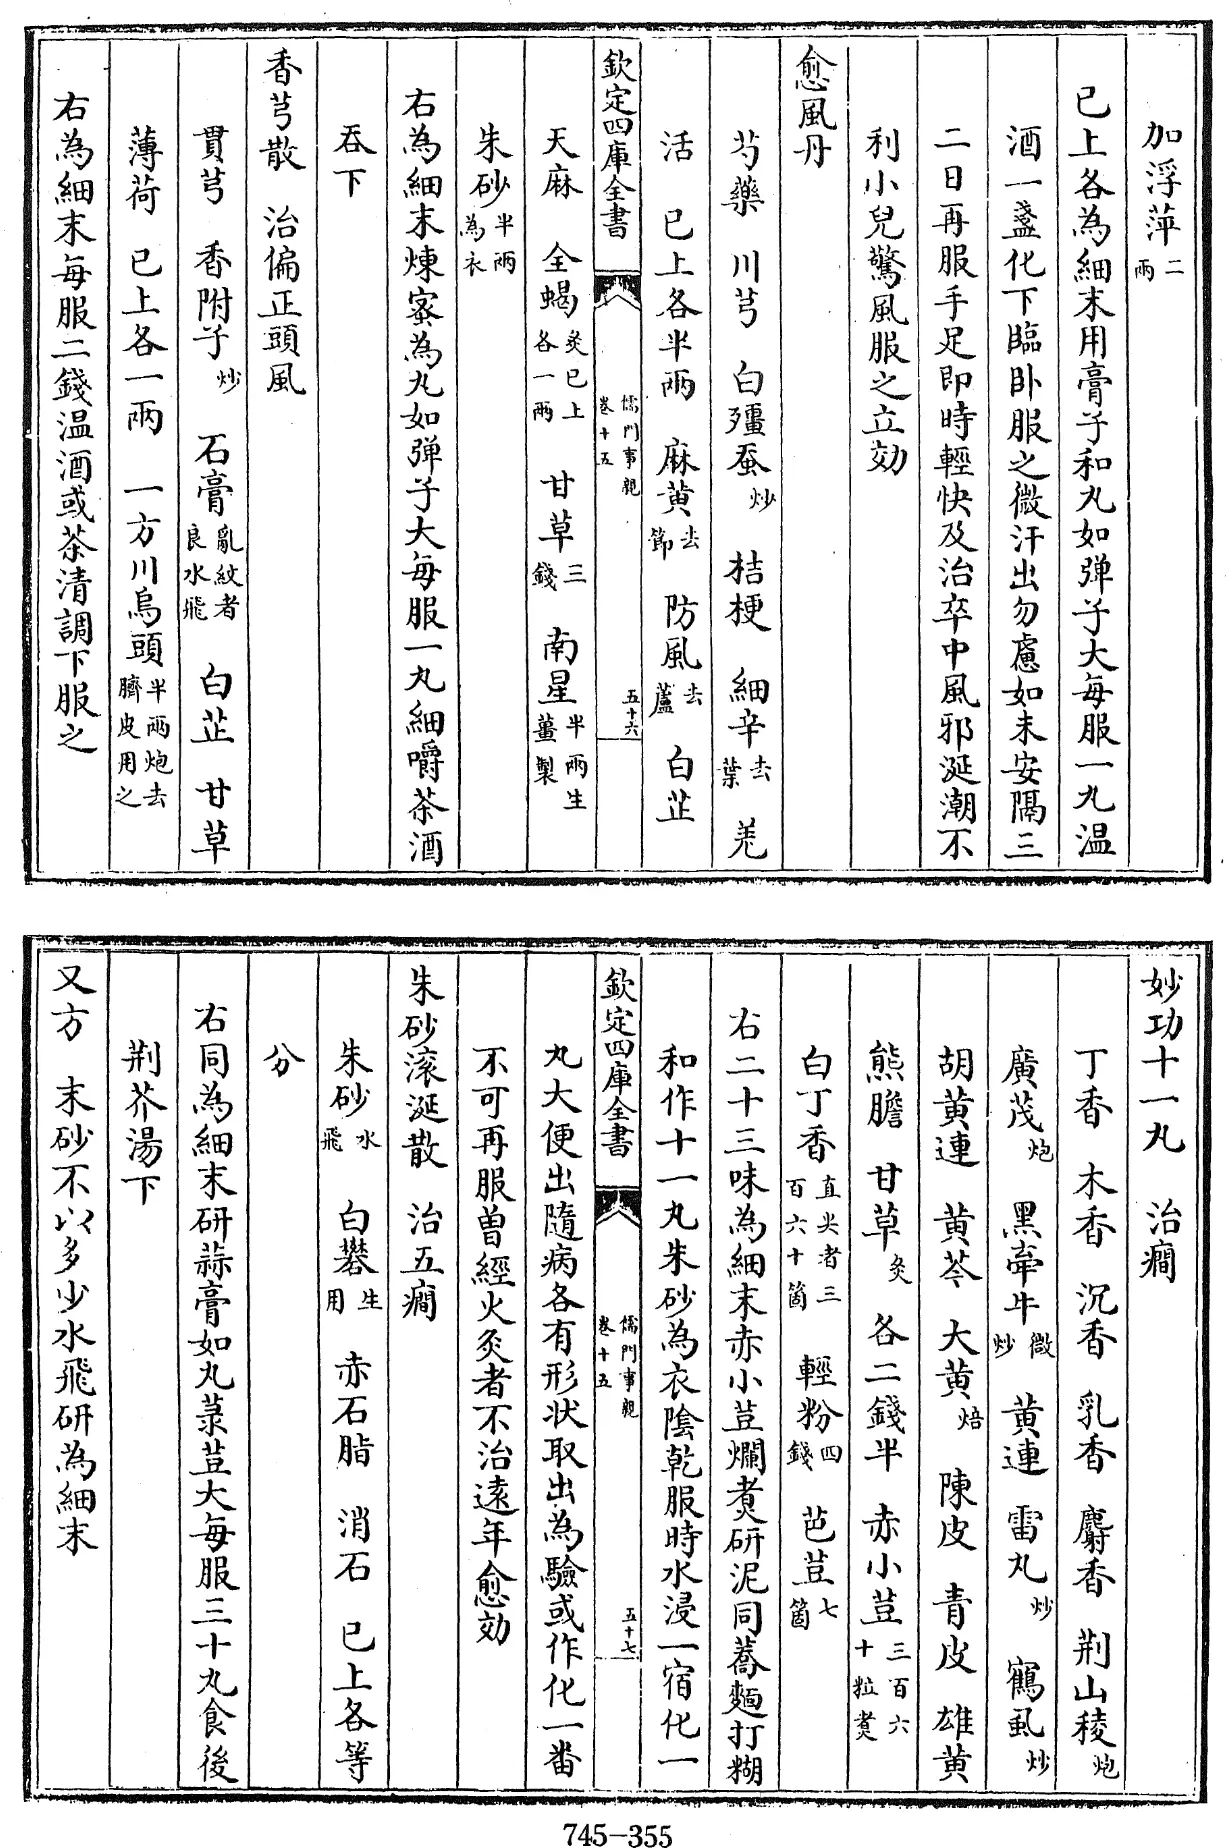 加浮萍二兩
已上各為細末用膏子和丸如弹子大每服一丸温
酒一盞化下臨卧服之微汗出勿慮如未安隔三
二日再服手足即時輕快及治卒中風邪涎潮不
利小兒驚風服之立効
愈風丹
芍藥　川芎　白殭蚕炒　桔梗　細辛去葉　羌
活　已上各半兩　麻黄去節　防風去蘆　白芷
欽定四庫全書　儒門事親卷十五　五十六
天麻　全蝎炙已上各一兩　甘草三錢　南星半兩生薑製
朱砂半兩為衣
右為細末煉蜜為丸如弹子大每服一丸細嚼茶酒
吞下
香芎散　治偏正頭風
貫芎　香附子炒　石膏亂紋者良水飛　白芷　甘草
薄荷　已上各一兩　一方川烏頭半兩炮去臍皮用之
右為細末每服二錢温酒或茶清調下服之
妙功十一丸　治癇
丁香　木香　沉香　乳香　麝香　荆山稜炮
廣茂炮　黑牽牛微炒　黄連　雷丸炒　鶴虱炒
胡黄連　黄芩　大黄焙　陳皮　青皮　雄黄
熊膽　甘草炙　各二錢半　赤小荳三百六十粒煑
白丁香直尖者三百六十箇　輕粉四錢　芭荳七箇
右二十三味為細末赤小荳爛煑研泥同蕎麵打糊
和作十一丸朱砂為衣陰乾服時水浸一宿化一
欽定四庫全書　儒門事親卷十五　五十七
丸大便出隨病各有形状取出為驗或作化一番
不可再服曽經火灸者不治逺年愈効
朱砂滚涎散　治五癇
朱砂水飛　白礬生用　赤石脂　消石　已上各等
分
右同為細末研蒜膏如丸菉荳大每服三十丸食後
荆芥湯下
又方　末砂不以多少水飛研為細末
745-355